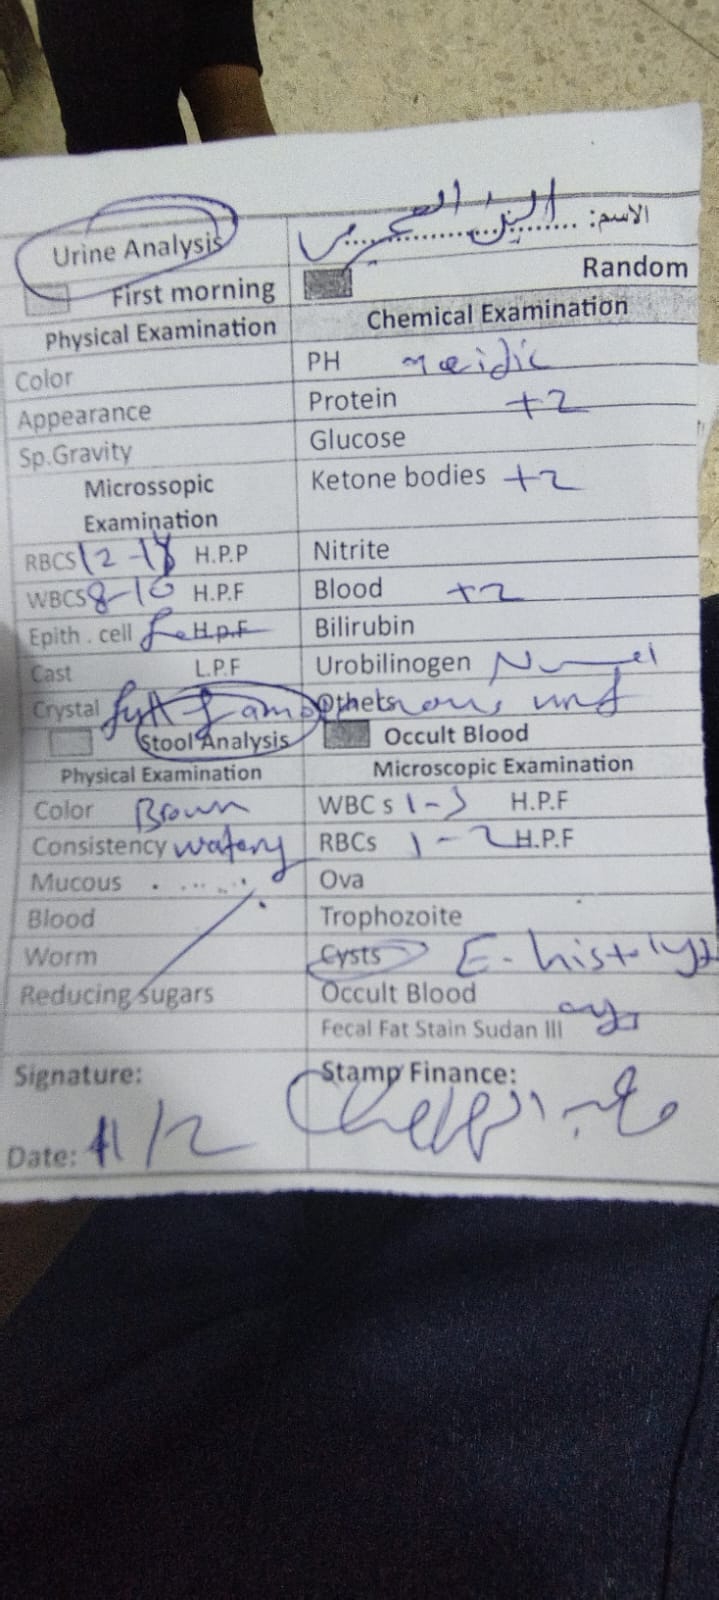 الاسم:
Urine Analysis
First morning
Random
Physical Examination
Chemical Examination
Color
PH acidic
Appearance
Protein +2
Sp.Gravity
Glucose
Microssopic
Examination
Ketone bodies +2
RBCS 12-18 H.P.P
Nitrite
WBCS 8-10 H.P.F
Blood +2
Epith . cell H.p.F
Bilirubin
Cast L.P.F
Urobilinogen
Crystal
Othets
Stool Analysis
Occult Blood
Physical Examination
Microscopic Examination
Color Brown
WBC s 1-3 H.P.F
Consistency watery
RBCs 1-2 H.P.F
Mucous
Ova
Blood
Trophozoite
Worm
Cysts E. histolyt
Reducing sugars
Occult Blood
Fecal Fat Stain Sudan III
Signature:
Stamp Finance:
Date: 11/2